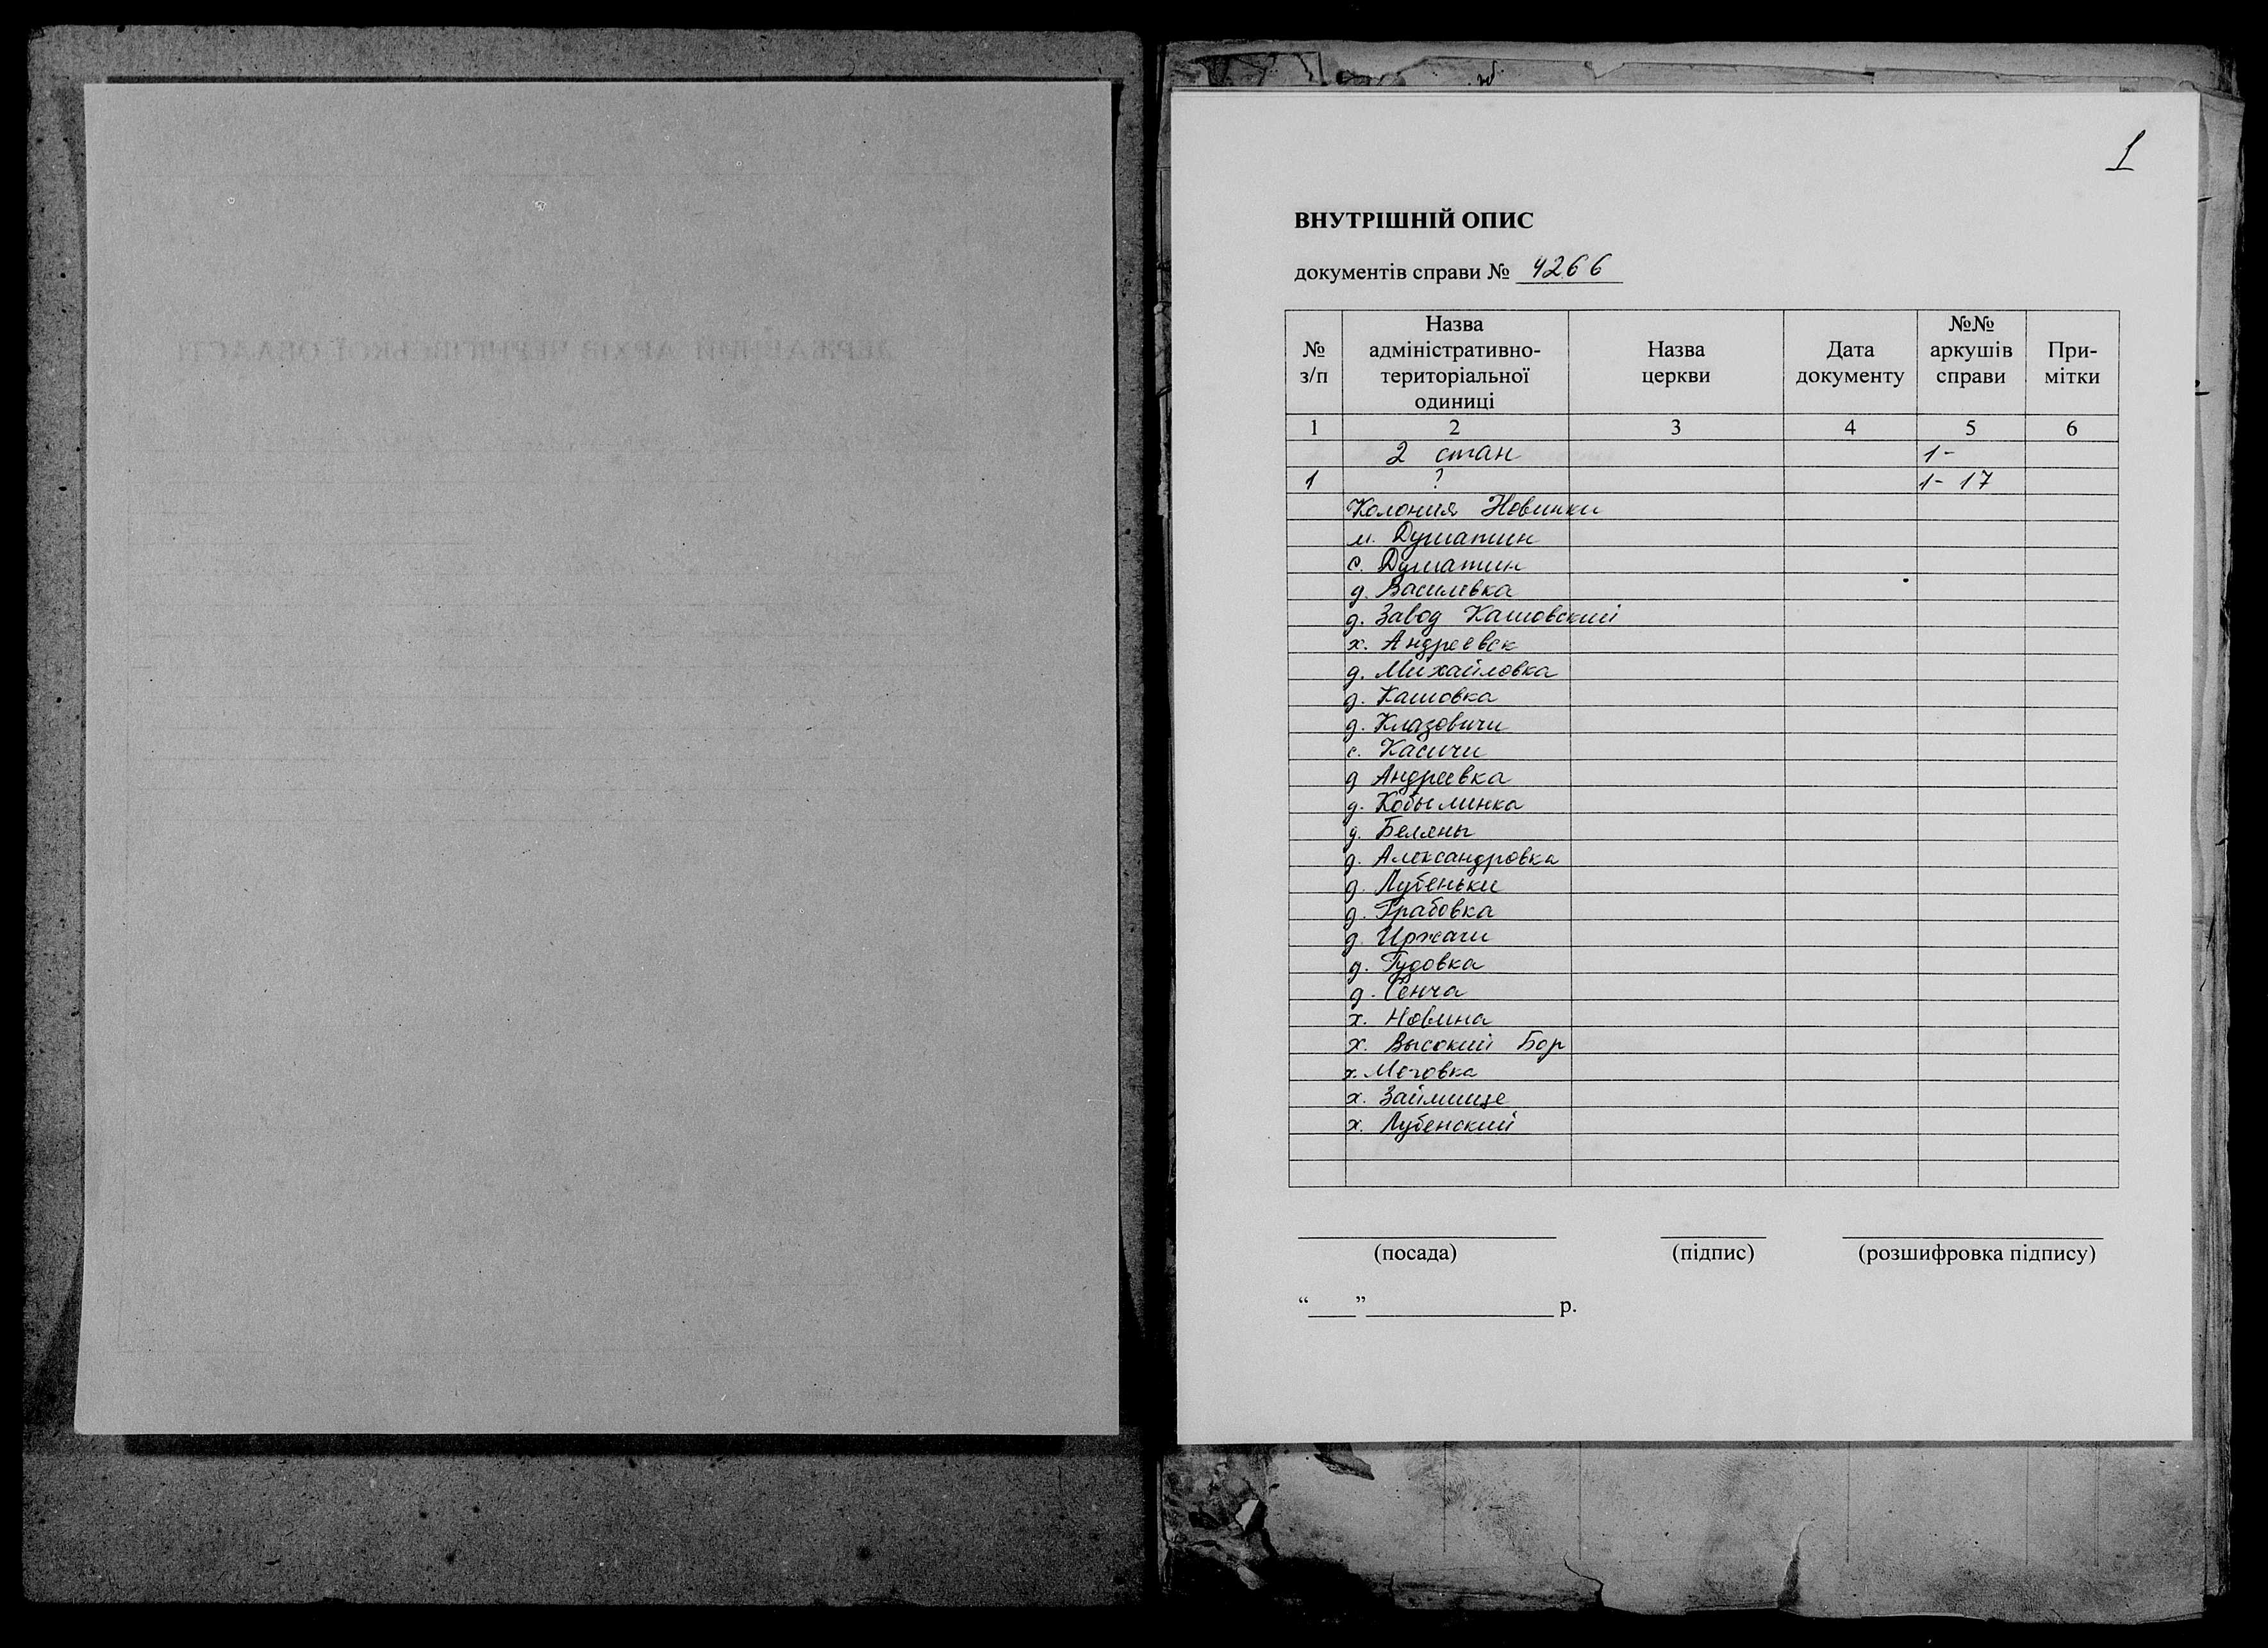 1
ВНУТРІШНІЙ ОПИС
документів справи № 4266
№ з/п | Назва адміністративно-територіальної одиниці | Назва церкви | Дата документу | №№ аркушів справи | При-мітки
1 2 3 4 5 6
2 стан 1-
1 ? 1- 17
Колония Новинки
м. Душатин
с. Душатин
д. Василевка
д. Завод Кашовский
х. Андреевск
д. Михайловка
д. Кашовка
д. Клазовичи
с. Касичи
д Андреевка
д. Кобылинка
д. Беляны
д. Александровка
д. Лубеньки
д. Грабовка
д. Иржачи
д. Гудовка
д. Сенча
х. Новина
х. Высокий Бор
х. Меговка
х. Займище
х. Лубенский
(посада) (підпис) (розшифровка підпису)
“____” ________________ р.
ДЕРЖАВНИЙ АРХІВ ЧЕРНІГІВСЬКОЇ ОБЛАСТІ